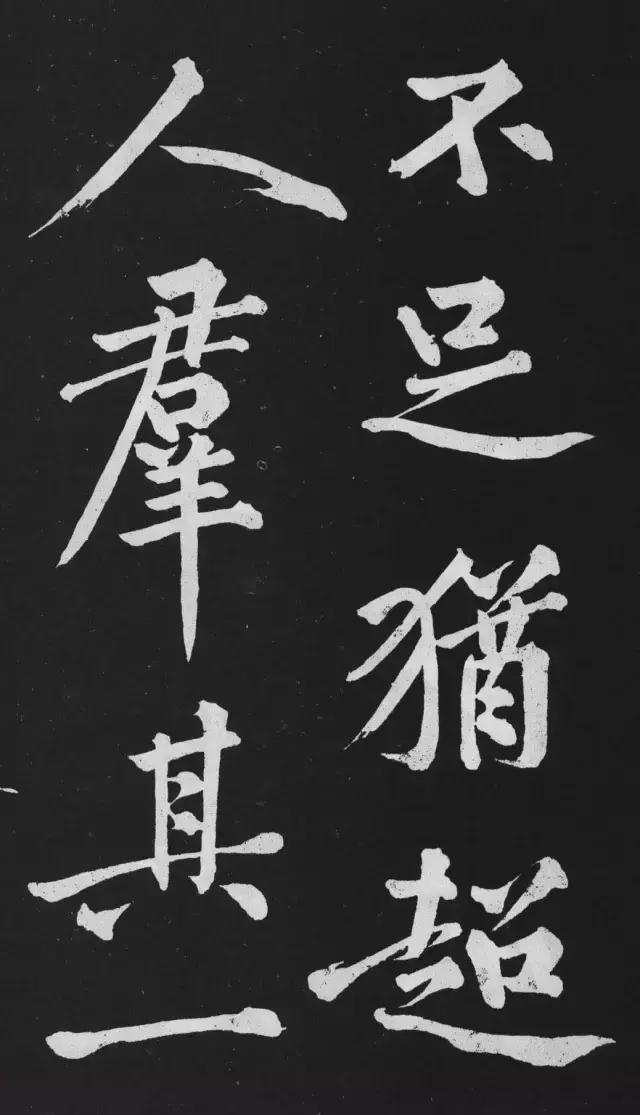 不足猶超
人羣其一